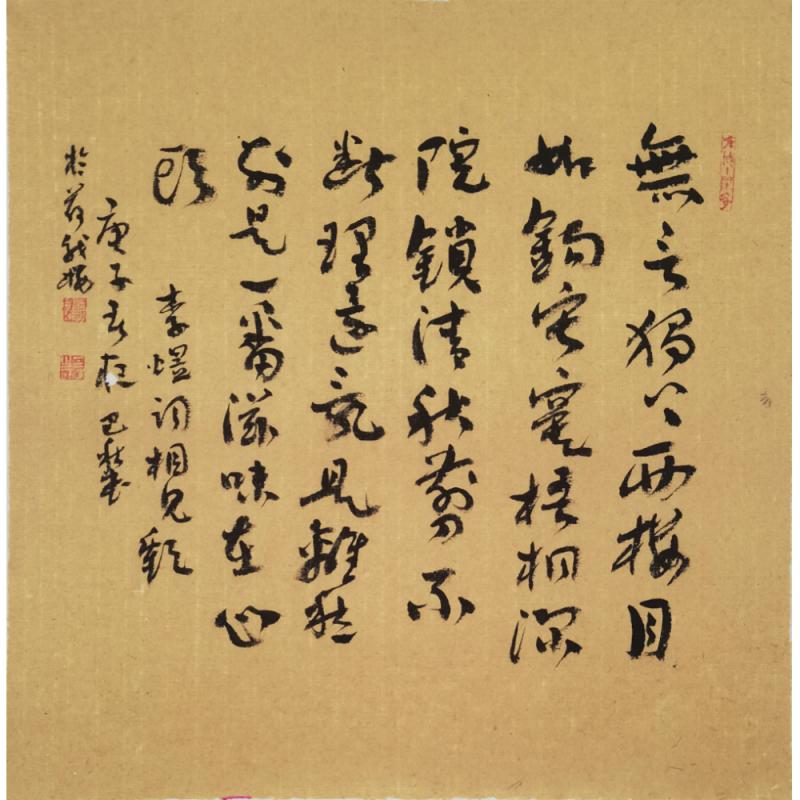 無言獨上西樓月
如鉤寂寞梧桐深
院鎖清秋剪不
斷理還亂是離愁
別是一番滋味在心
頭 李煜詞相見歡
庚子
於